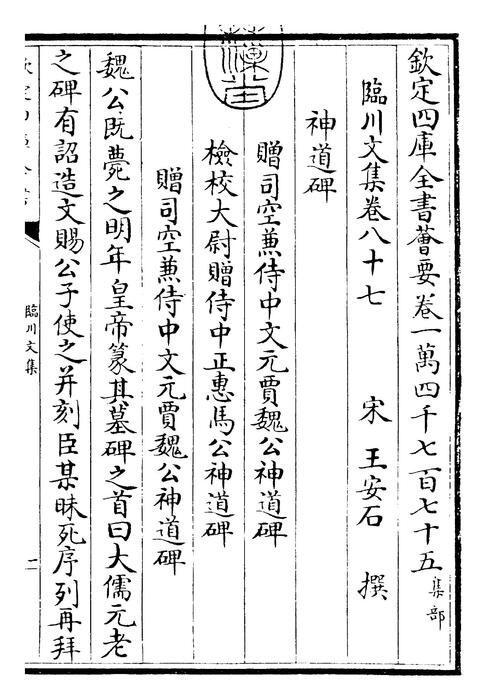 欽定四庫全書薈要卷一萬四千七百七十五集部
臨川文集卷八十七 宋 王安石 撰
神道碑
贈司空兼侍中文元賈魏公神道碑
檢校大尉贈侍中正惠馬公神道碑
贈司空兼侍中文元賈魏公神道碑
魏公既薨之明年皇帝篆其墓碑之首曰大儒元老
之碑有詔造文賜公子使之并刻臣某昧死序列再拜
臨川文集